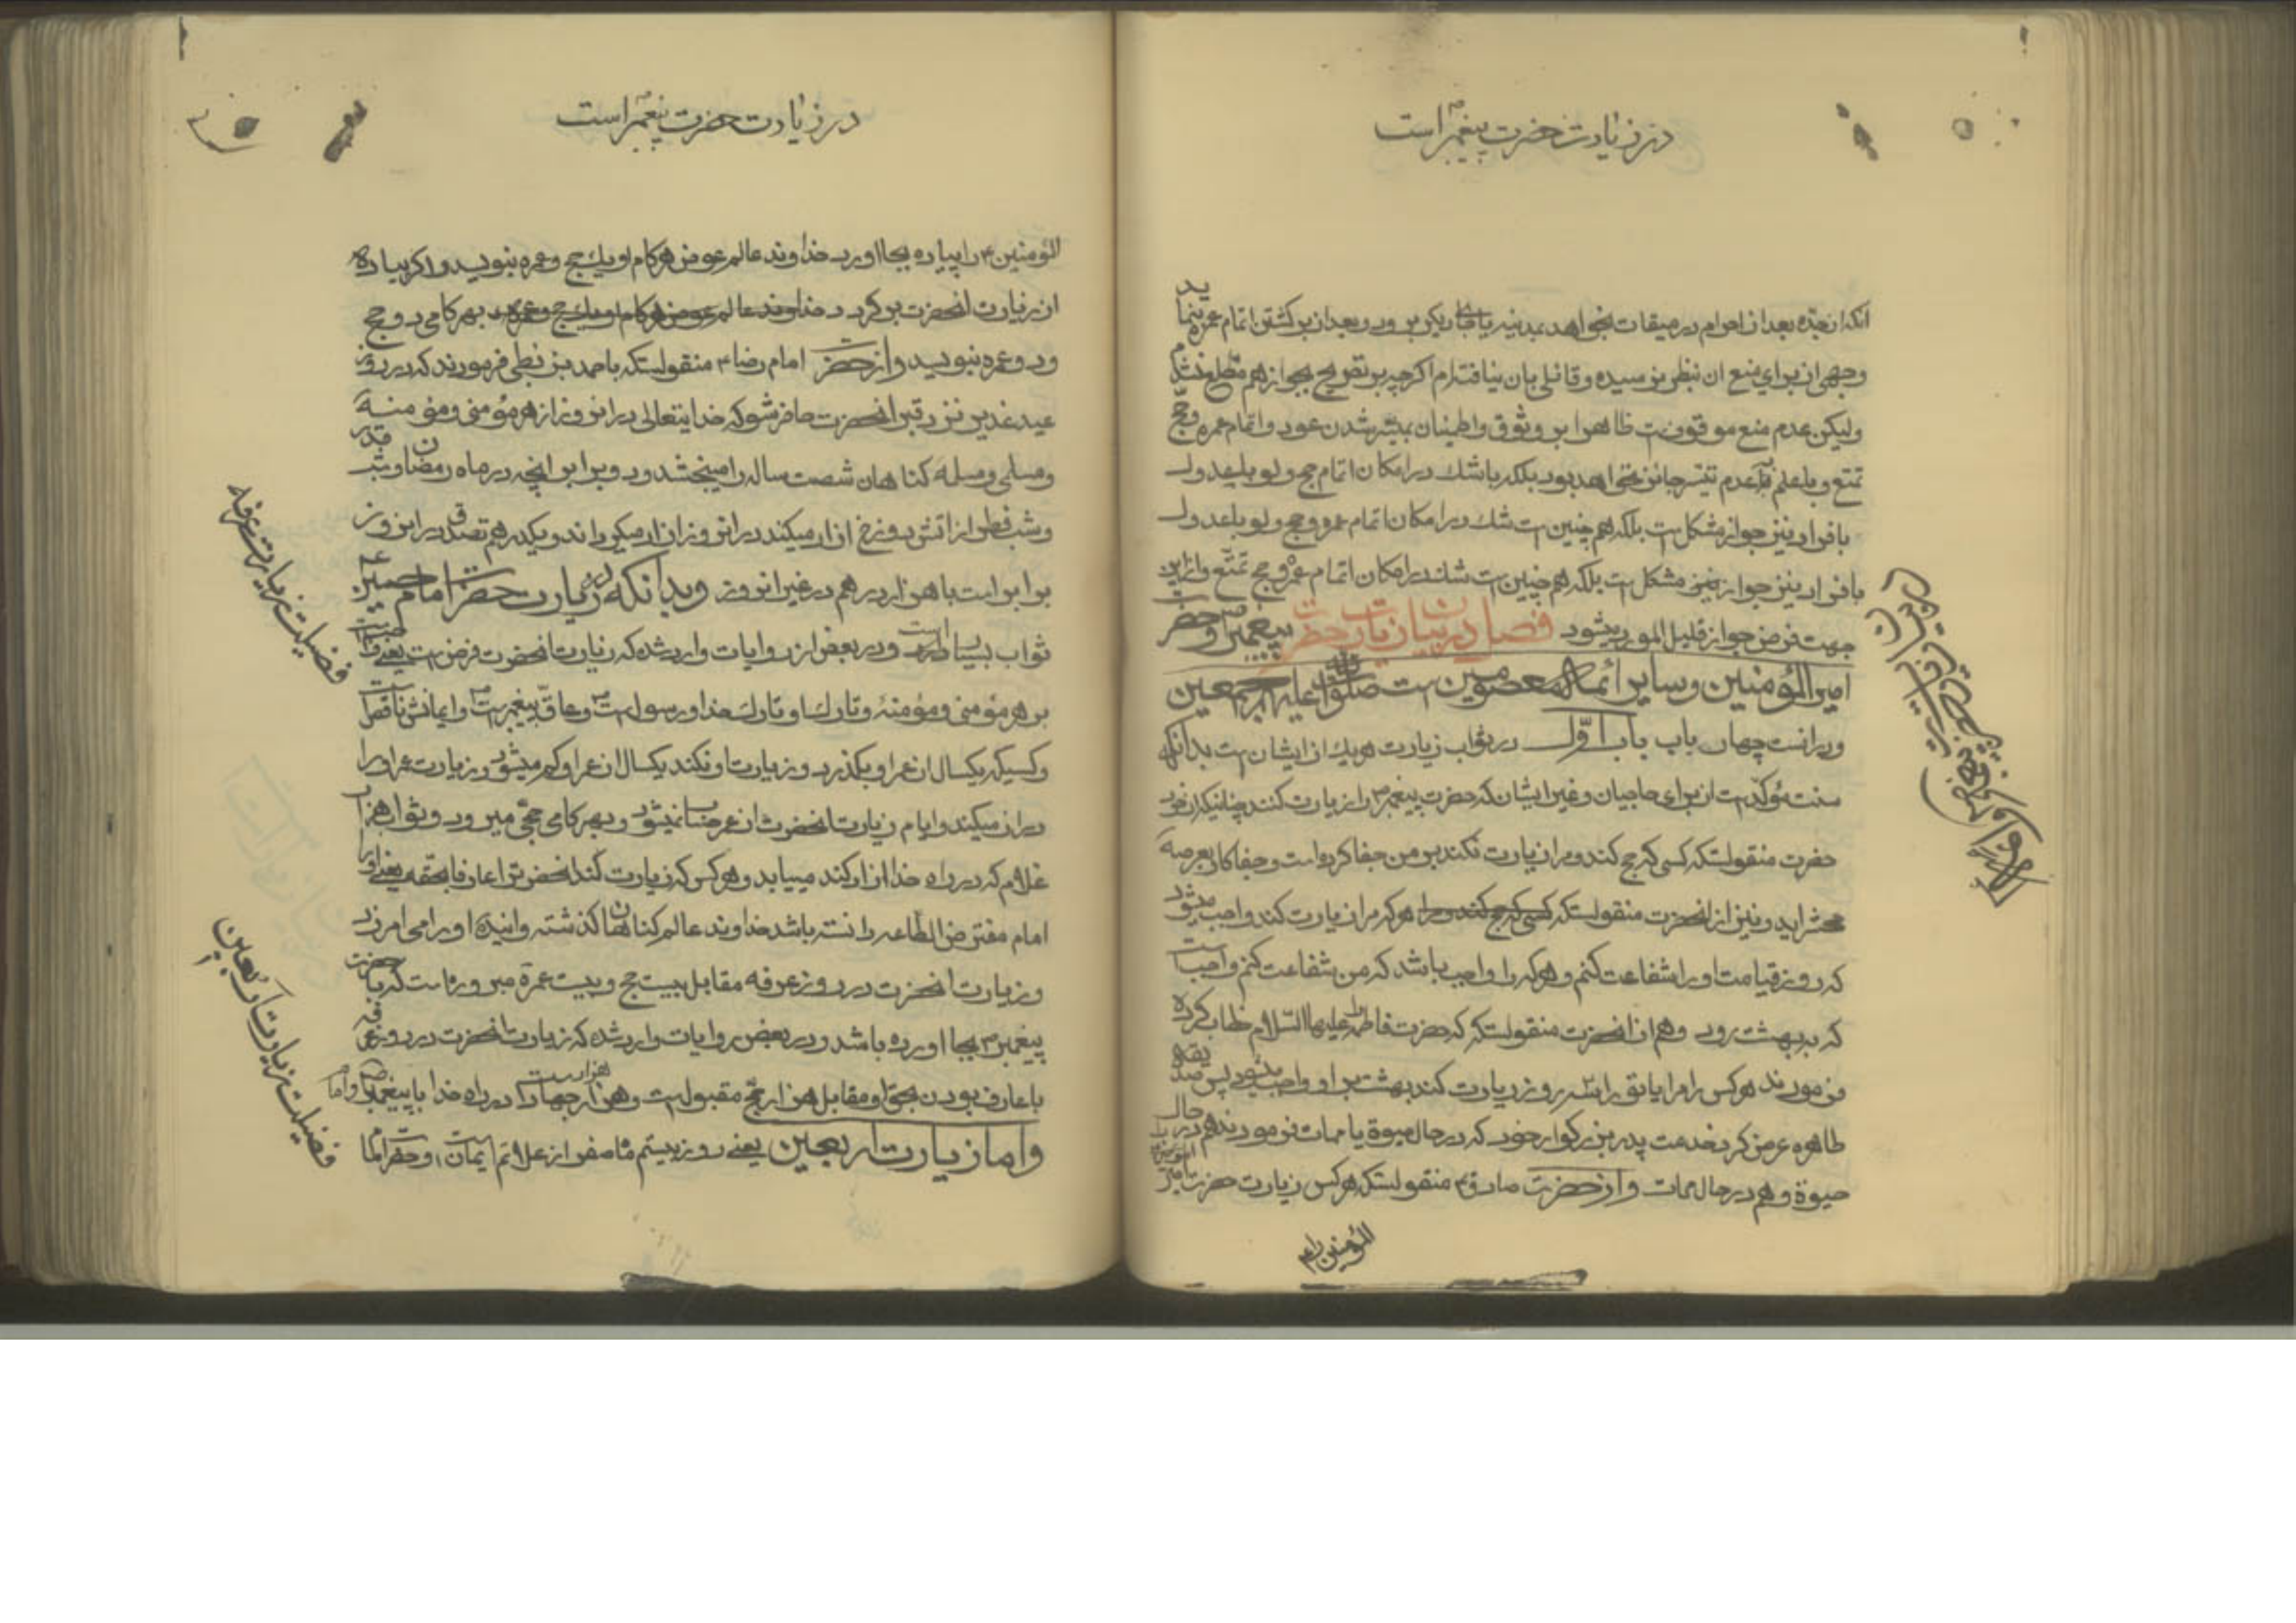 در زیارت حضرت پیغمبر است
آنکه از جده بعد از احرام در میقات بخواهد بمدینه یا جای دیگر برود و بعد از برگشتن اتمام عمره نماید
وجهی از برای منع آن بنظر نرسیده و قائلی بآن نیافته‌ام اگر چه بر تصریح بجواز هم مطلع نشدم
ولیکن عدم منع موقوفست ظاهرا بر وثوق و اطمینان بمیسّر شدن عود و اتمام عمره و حجّ
تمتع و با علم بعدم تیسّر جائز نخواهد بود بلکه با شك در امکان اتمام حج ولو بلعدول
بافراد نیز جواز مشکل است بلکه هم چنین است شك در امکان اتمام عمره و حج ولو بلعدول
بافراد نیز جواز نیز مشکل است بلکه هم چنین است شك در امکان اتمام عمره و حج تمتّع و ازین
جهت فرض جواز قلیل المورد میشود فصل در بیان زیارت حضرت پیغمبر ص و حضرت
امیر المؤمنین و سایر ائمه المعصومین است صلوات الله علیهم اجمعین
و در آنست چهار باب باب اوّل در ثواب زیارت هر یك از ایشان است بدانکه
سنت مؤکّد است از برای حاجیان و غیر ایشان که حضرت پیغمبر ص را زیارت کنند چنانیکه از خود
حضرت منقولستکه کسی که حج کند و مرا زیارت نکند بر من جفا کرده است و جفا کار بعرصه
محشر آید و نیز از آنحضرت منقولستکه کسی که حج کند و مرا هر که مرا زیارت کند واجب میشود
که روز قیامت او را شفاعت کنم و هر که را واجب باشد که من شفاعت کنم واجب است
که به بهشت رود و هم از آنحضرت منقولستکه که حضرت فاطمه علیها السّلام خطاب کرده
فرمودند هر کس مرا یا تو را سه روز زیارت کند بهشت بر او واجب میشود پس صدیقه
طاهره عرض کرد بخدمت پدر بزرگوار خود که در حال حیوة یا ممات فرمودند هم در حال
حیوة و هم در حال ممات و از حضرت صادق ع منقولستکه هر کس زیارت حضرت امیر
المؤمنین ع را
در زیارت حضرت پیغمبر است
المؤمنین ع را پیاده بجا آورد خداوند عالم عوض هر کام او یك حج و عمره بنویسد و اکر پیاده
از زیارت آنحضرت برکردد خداوند عالم عوض هر کام او یك حج و عمره بهر کامی دو حج
و دو عمره بنویسد و از حضرت امام رضا ع منقولستکه باحمد بزنطی فرمودند که در روز
عید غدیر نزد قبر آنحضرت حاضر شو که خدایتعالی در آن روز از هر مؤمنی و مؤمنه
و مسلمی و مسلمه کناهان شصت ساله را میبخشد و دو برابر آنچه در ماه رمضان و شب قدر
و شب فطر از آتش دوزخ آزاد میکند در آنروز آزاد میکرداند و یکدرهم تصدق در آنروز
برابر است با هزار درهم در غیر آنروز و بدانکه در زیارت حضرت امام حسین ع
ثواب بسیار است و در بعض از روایات وارد شده که زیارت آنحضرت فرض است یعنی واجبست
بر هر مؤمنی و مؤمنهٔ و تارك او تارك خدا و رسول است و عاق پیغمبر است و ایمانش ناقص است
و کسیکه یکسال از عمر او بکذرد و زیارت او نکند یکسال از عمر او کم میشود و زیارت عمر او را
دراز میکند و ایام زیارت آنحضرت از عمر حساب نمیشود و بهر کامی حجّی مبرور و ثواب هزار
غلام که در راه خدا آزاد کند مییابد و هر کس که زیارت کند آنحضرتو عارفا بحقه یعنی او را
امام مفترض الطاعه دانسته باشد خداوند عالم کناهان کذشته و آینده او را می‌آمرزد
و زیارت آنحضرت در روز عرفه مقابل بیست حج و بیست عمرة مبروره است که با حضرت
پیغمبر ص بجا آورده باشد و در بعض روایات وارد شده که زیارت آنحضرت در روز عرفه
با عارف بودن بحق او مقابل هزار حج مقبول است و هزار جهاد است که در راه خدا با پیغمبر یا امام
و اما زیارت اربعین یعنی روز بیستم ماه صفر از علائم ایمان است و حضرت امام
فضیلت زیارت عرفه
فضیلت زیارت اربعین